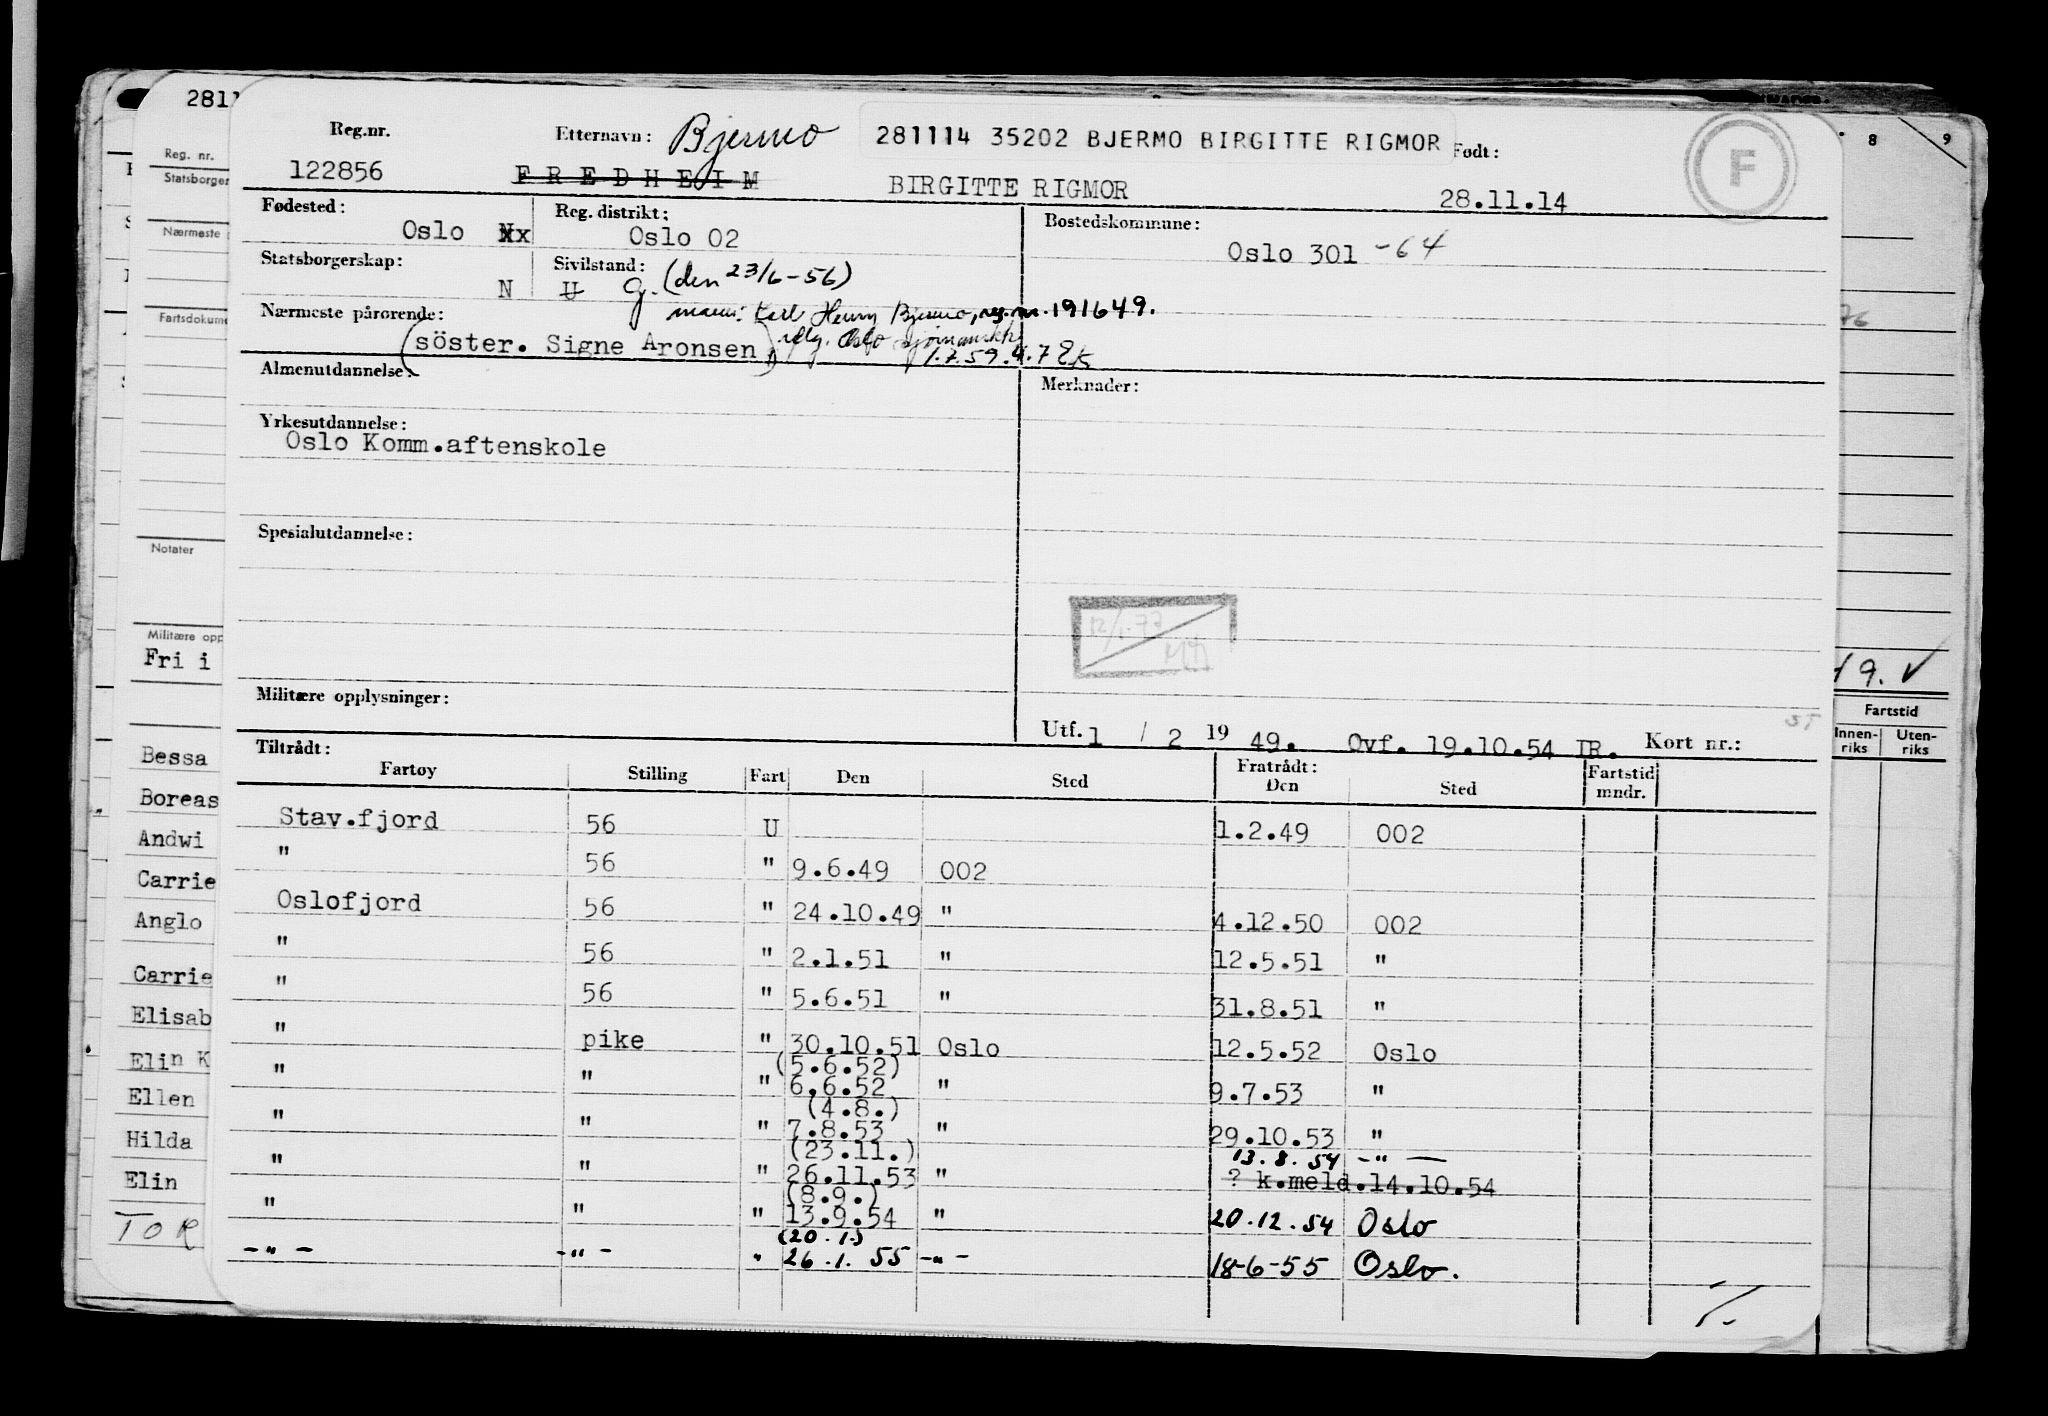 2811
Reg.nr. Etternavn: Bjermo 281114 35202 BJERMO BIRGITTE RIGMOR Født: F 8 9
122856 FREDHEIM BIRGITTE RIGMOR 28.11.14
Fødested: Oslo Reg. distrikt: Oslo 02 Bostedskommune: Oslo 301 -64
Statsborgerskap: N Sivilstand: U G. (den 23/6-56)
Nærmeste pårørende: mann: Karl Henry Bjermo, reg.nr. 191649.
(söster. Signe Aronsen) iflg. Oslo
1.7.59.
Almenutdannelse: Merknader:
Yrkesutdannelse:
Oslo Komm.aftenskole
Spesialutdannelse:
12/1.77
Militære opplysninger:
Utf. 1 / 2 19 49. Ovf. 19.10.54 IR. Kort nr.:
Tiltrådt: Fratrådt: Fartstid
Fartøy Stilling Fart Den Sted Den Sted mndr.
Stav.fjord 56 U 1.2.49 002
" 56 " 9.6.49 002
Oslofjord 56 " 24.10.49 " 4.12.50 002
" 56 " 2.1.51 " 12.5.51 "
" 56 " 5.6.51 " 31.8.51 "
" pike " 30.10.51 Oslo 12.5.52 Oslo
(5.6.52)
" " " 6.6.52 " 9.7.53 "
(4.8.)
" " " 7.8.53 " 29.10.53 "
(23.11.) 13.8.54 -"-
" " " 26.11.53 " ? k.meld.14.10.54
(8.9.)
" " " 13.9.54 " 20.12.54 Oslo
(20.1.)
-"- -"- " 26.1.55 -"- 18-6-55 Oslo.
Reg. nr.
Statsborger
Nærmeste
Fartsdokume
Notater
Militære opp
Fri i
Bessa
Boreas
Andwi
Carrie
Anglo
Carrie
Elisab
Elin K
Ellen
Hilda
Elin
TOR
76
19. ✓
Fartstid
Innen-riks Uten-riks